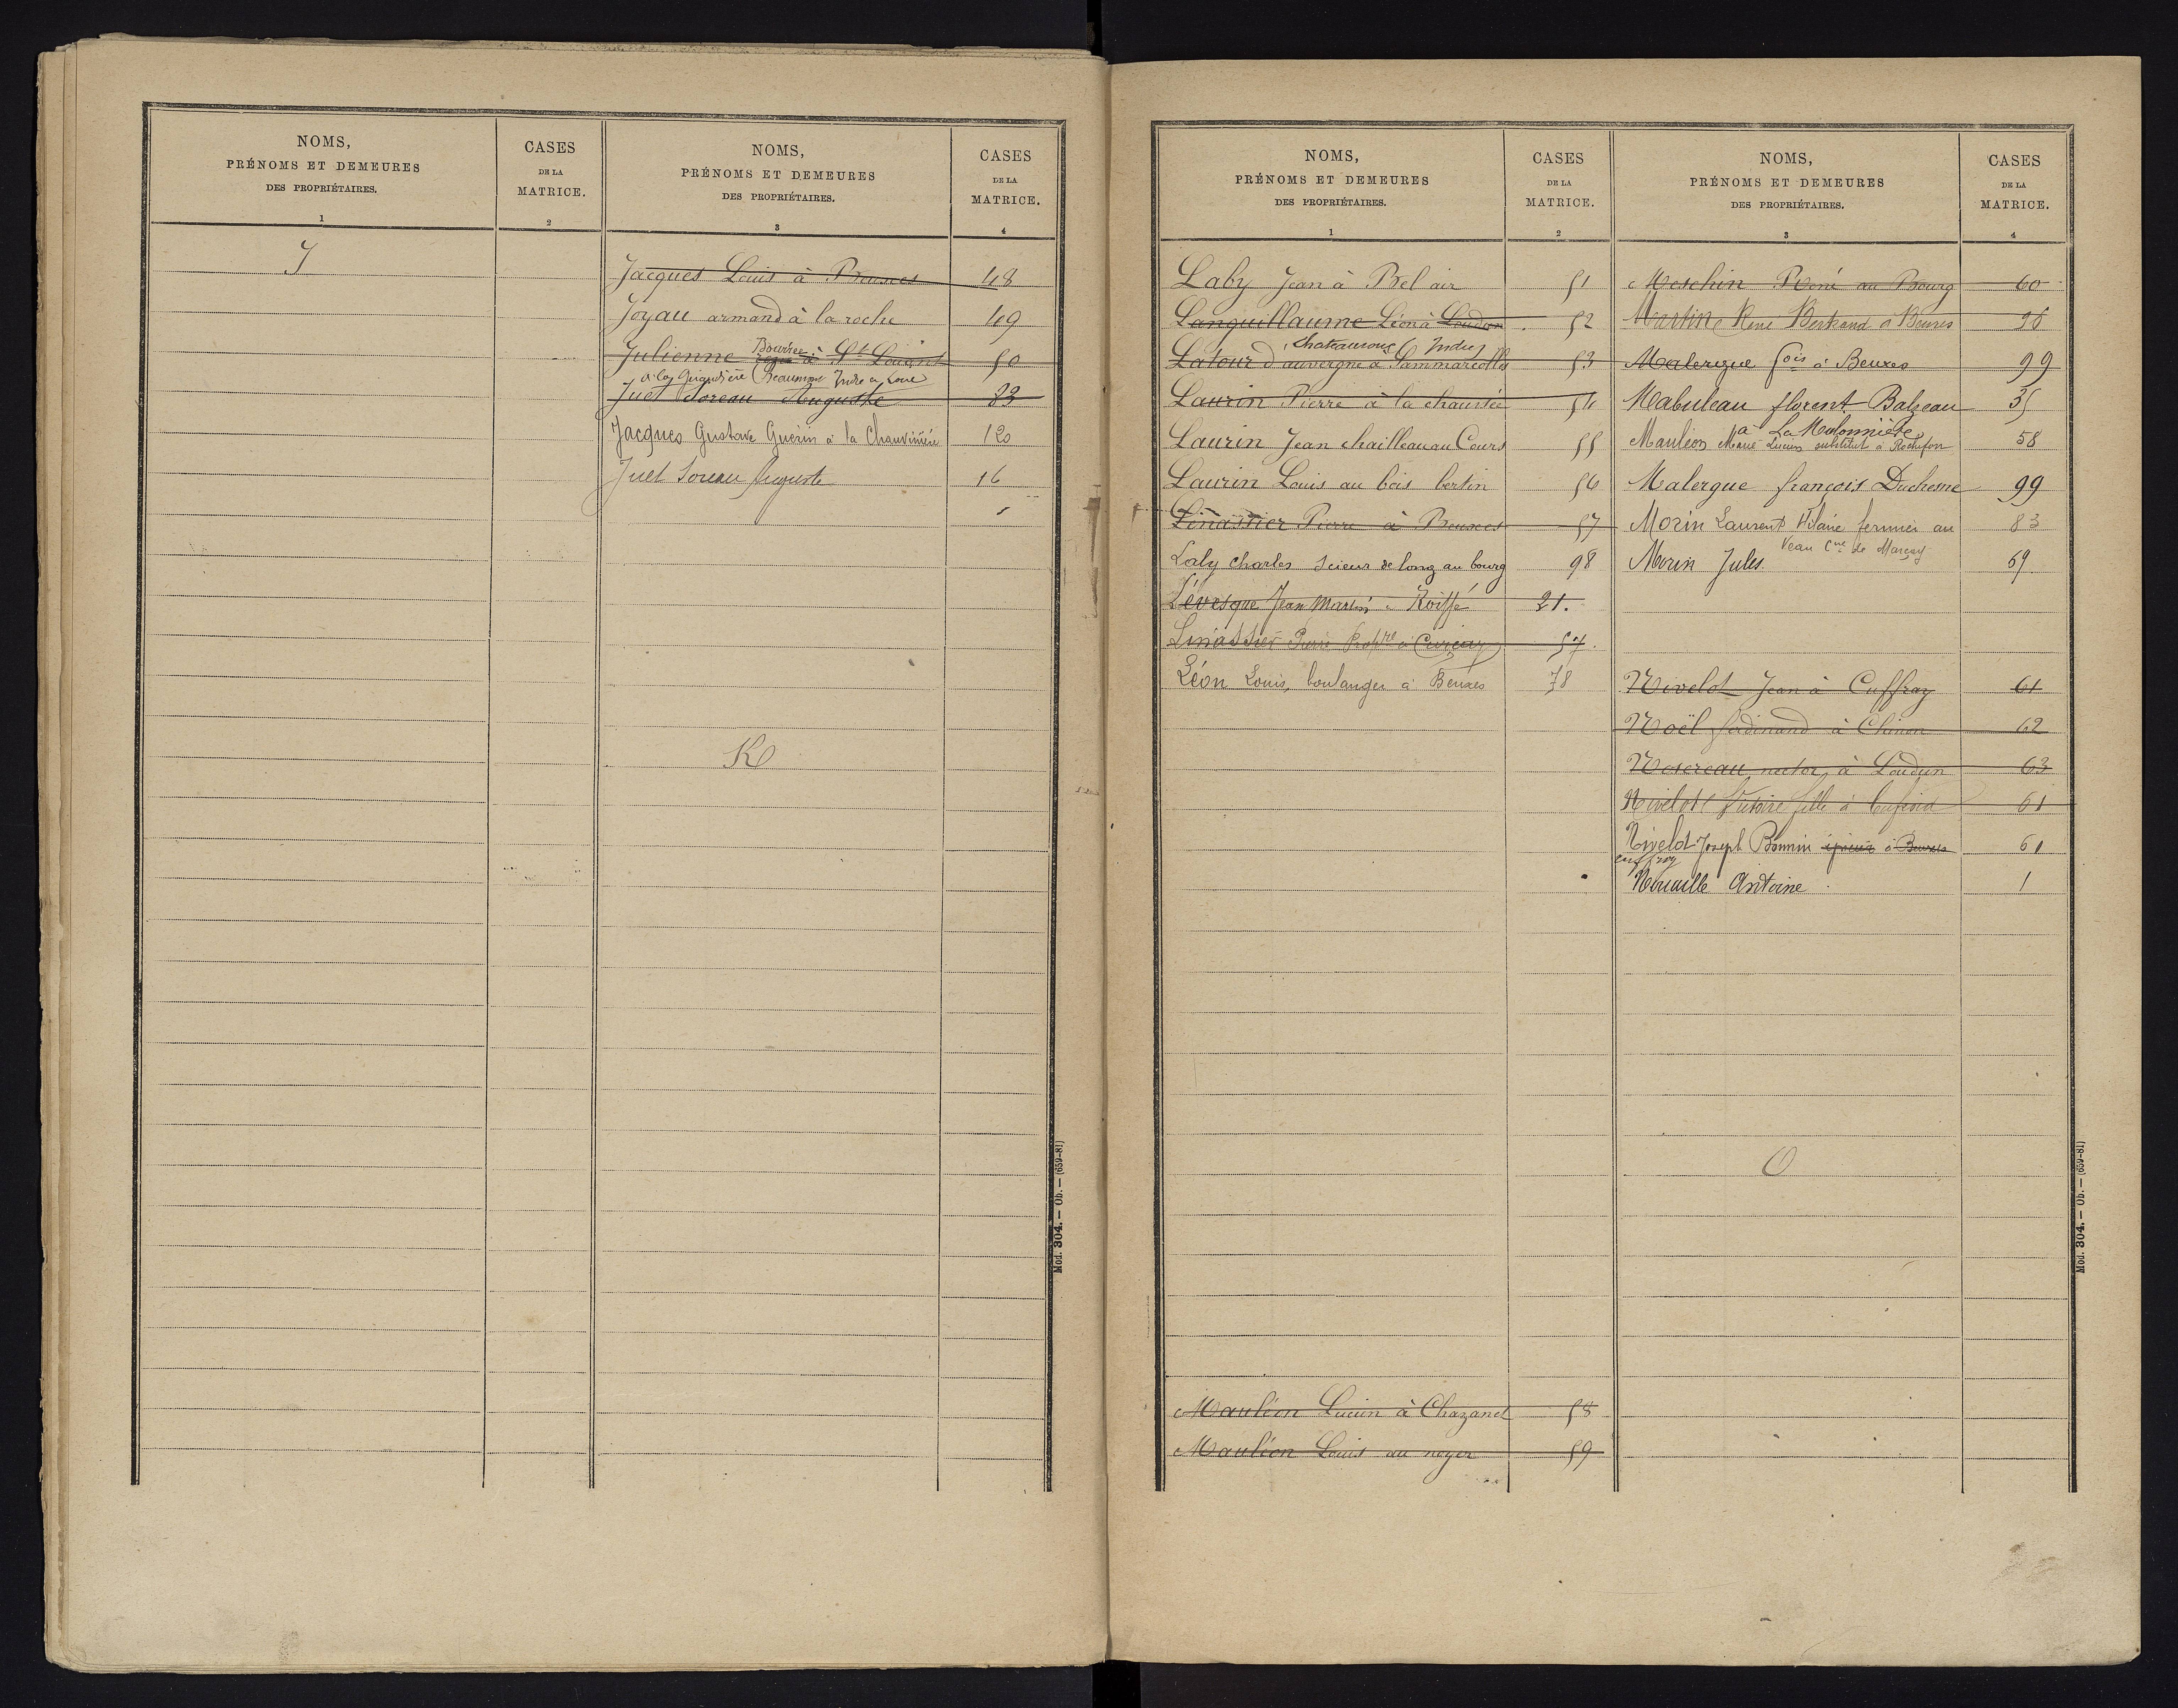 NOMS,
PRÉNOMS ET DEMEURES
DES PROPRIÉTAIRES.
1
CASES
DE LA
MATRICE.
2
J
NOMS,
PRÉNOMS ET DEMEURES
DES PROPRIÉTAIRES.
3
CASES
DE LA
MATRICE.
4
Jacques Louis à Beuxes 48
Joyau armand à la roche 49
Julienne Bourrée à St Louant 50
à la Girardière (Beaumont Indre et Loire)
Juet Soreau Auguste 83
Jacques Gustave Guerin à la Chauvinière 120
Juet Soreau Auguste 16
K
Mod. 304. — Ob. — (659-81)
NOMS,
PRÉNOMS ET DEMEURES
DES PROPRIÉTAIRES.
1
CASES
DE LA
MATRICE.
2
Laby Jean à Bel air 51
Languillaume Léon à Loudun 52
Chateauroux (Indre)
Latour d'auvergne à Sammarcolles 53
Laurin Pierre à la chaussée 54
Laurin Jean chailleau au Cours 55
Laurin Louis au bois bertin 56
Linassier Pierre à Beuxes 57
Laly charles scieur de long au bourg 98
Lévesque Jean Martin à Roiffé 21.
Linassier Pierre Propre à Curçay 57.
Léon Louis, boulanger à Beuxes 78
Mauléon Lucien à Chazanet 58
Mauléon Louis au noyer 59
NOMS,
PRÉNOMS ET DEMEURES
DES PROPRIÉTAIRES.
3
CASES
DE LA
MATRICE.
4
Meschin René au Bourg 60
Martin René Bertrand à Beuxes 96
Malergue fois à Beuxes 99
Mabuleau florent Balzeau 35
à La Malonnière
Mauléon Marie Lucien substitut à Rochefort 58
Malergue françois Duchesne 99
Morin Laurent Hilaire fermier au 83
Veau Cne de Marçay
Morin Jules 69
Nivelot Jean à Cuffray 61
Noël ferdinand à Chinon 62
Nosereau nector à Loudun 63
Nivelot Victoire fille à 61
Nivelot Joseph Bonnin épicier à Beuxes 61
cuffroy
Nouaille Antoine 1
O
Mod. 304. — Ob. — (659-81)